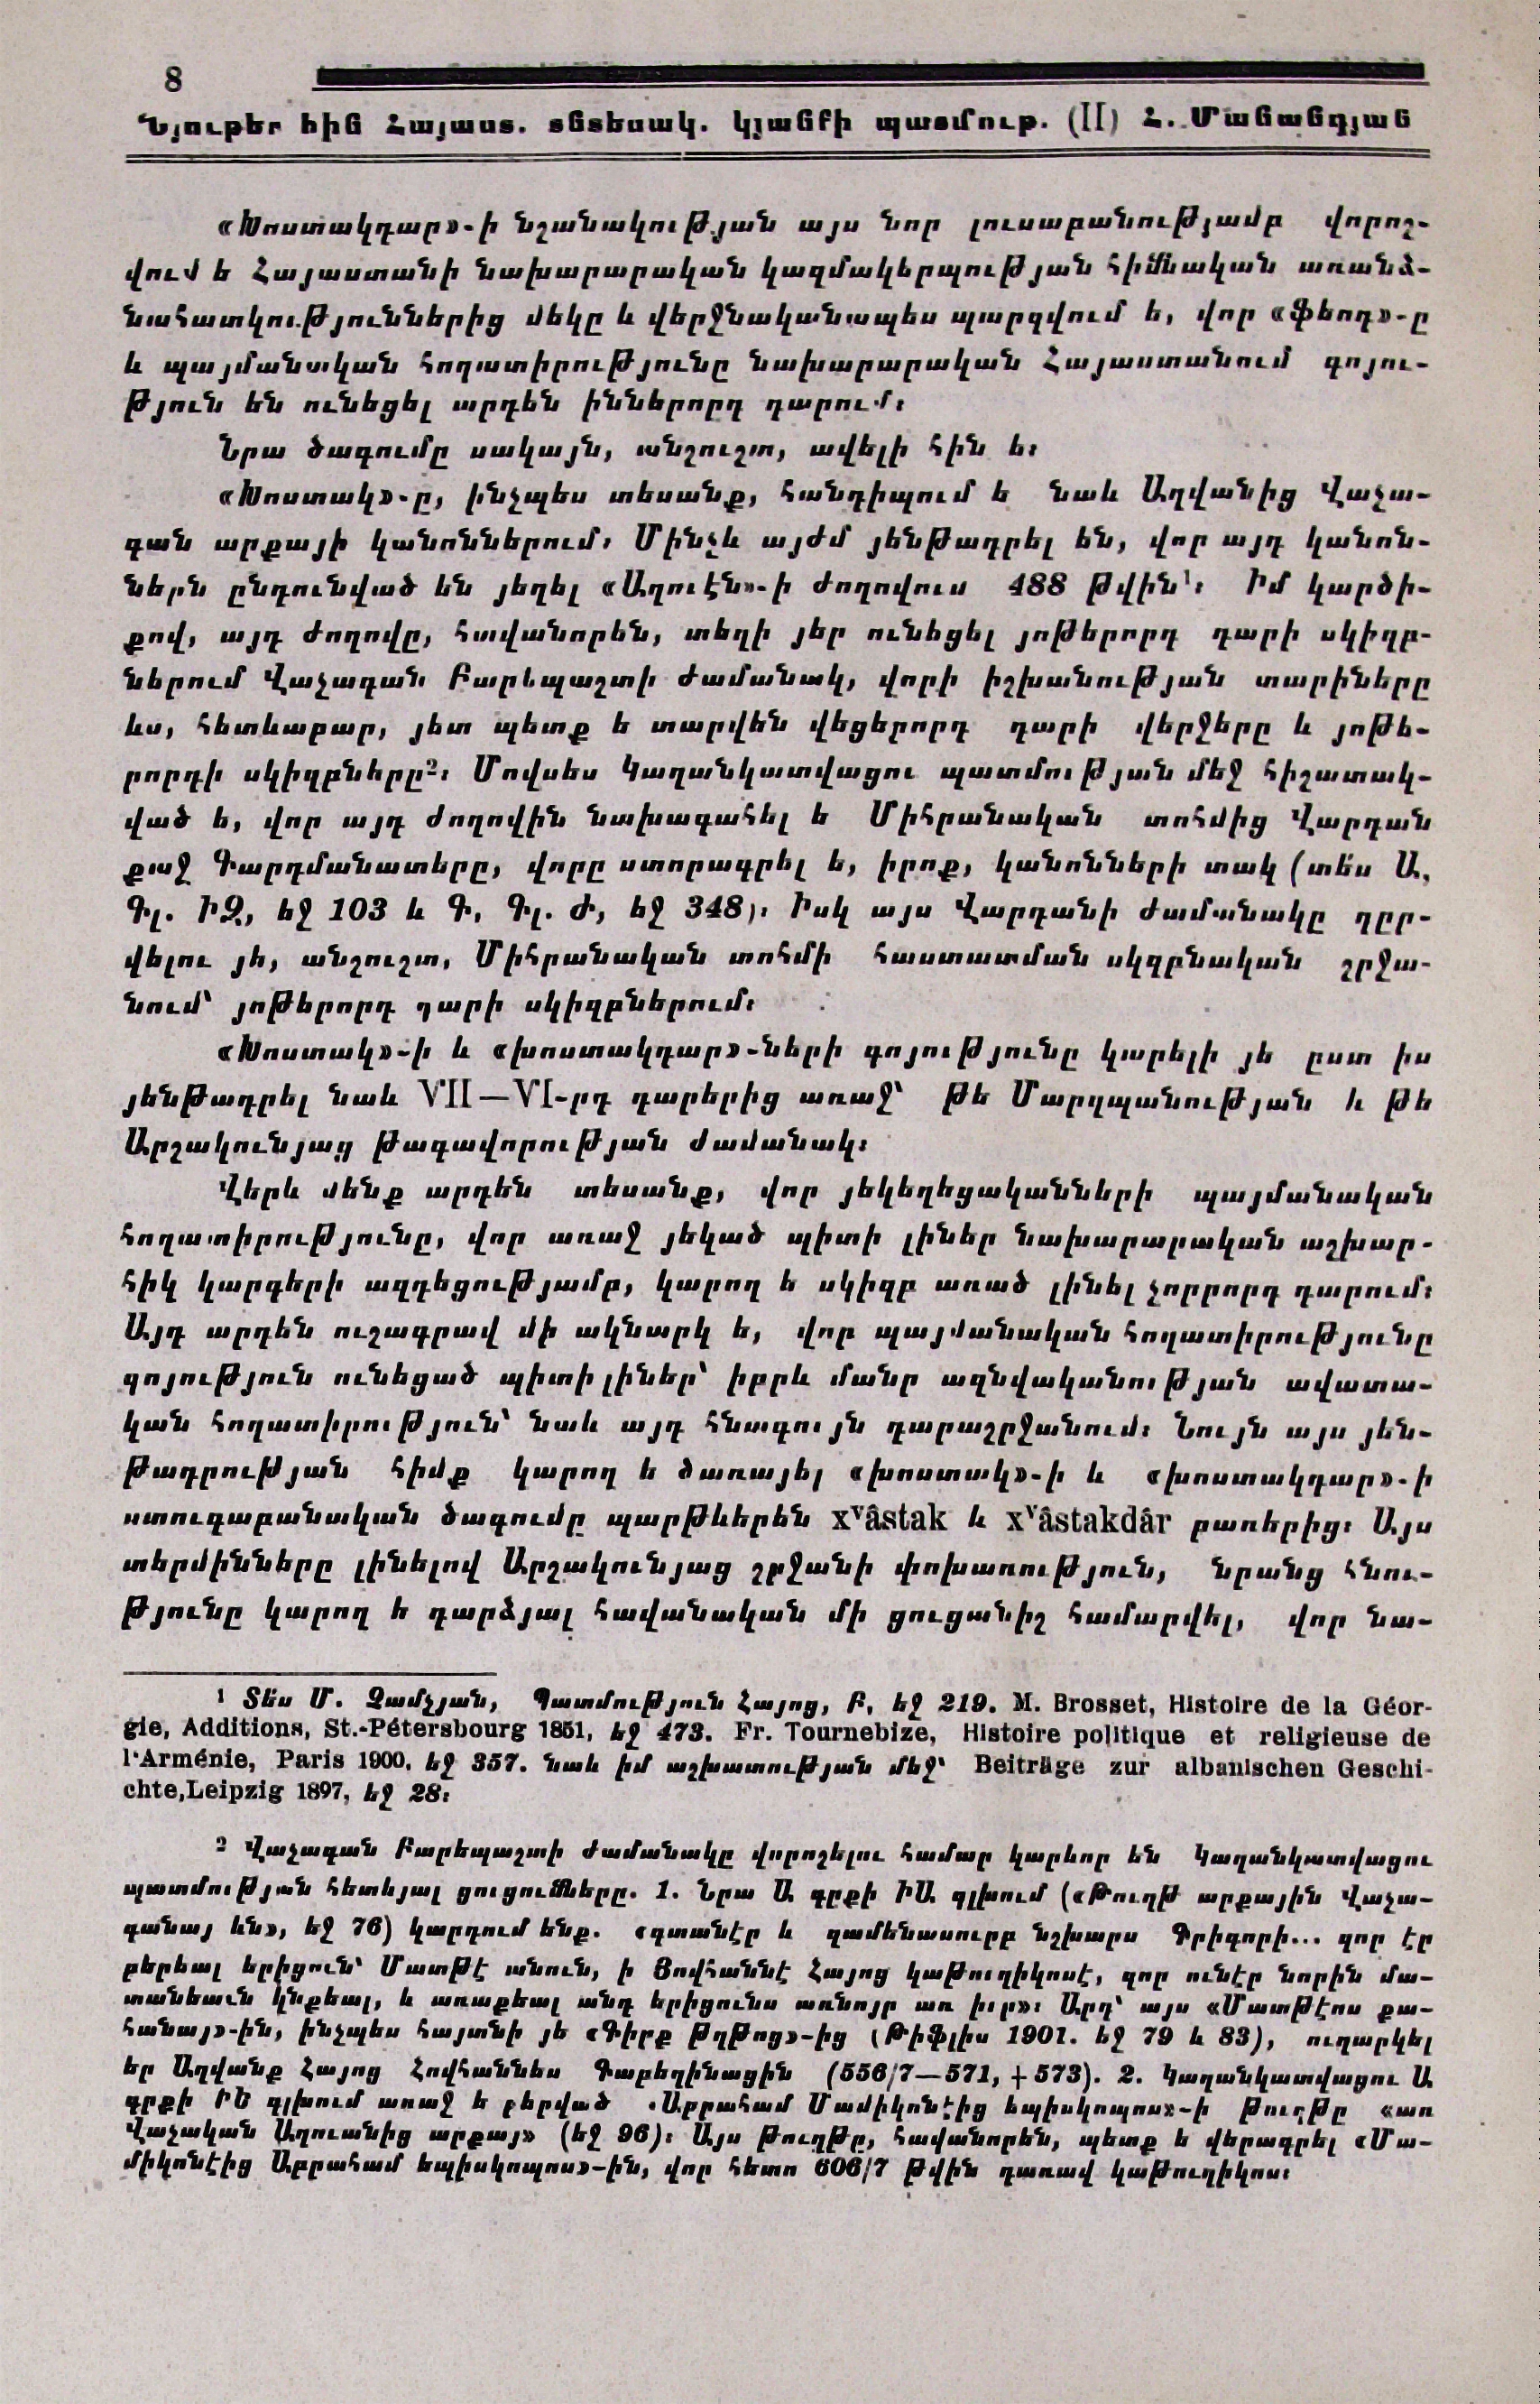 8
Նյութեր հին Հայաստ. տնտեսակ. կյանքի պատմութ. (II) Հ. Մանանդյան
«Խոստակդար»-ի նշանակության այս նոր լուսաբանությամբ վորոշ-
վում ե Հայաստանի նախարարական կազմակերպության հիմնական առանձ-
նահատկություններից մեկը և վերջնականապես պարզվում ե, վոր «ֆեոդ»-ը
և պայմանական հողատիրությունը նախարարական Հայաստանում գոյու-
թյուն են ունեցել արդեն իններորդ դարում։
Նրա ծագումը սակայն, անշուշտ, ավելի հին ե։
«Խոստակ»-ը, ինչպես տեսանք, հանդիպում ե նաև Աղվանից Վաչա-
գան արքայի կանոններում։ Մինչև այժմ յենթադրել են, վոր այդ կանոն-
ներն ընդունված են յեղել «Աղուէն»-ի ժողովում 488 թվին¹։ Իմ կարծի-
քով, այդ ժողովը, հավանորեն, տեղի յեր ունեցել յոթերորդ դարի սկիզբ-
ներում Վաչագան Բարեպաշտի ժամանակ, վորի իշխանության տարիները
ևս, հետևաբար, յետ պետք ե տարվեն վեցերորդ դարի վերջերը և յոթե-
րորդի սկիզբները²։ Մովսես Կաղանկատվացու պատմության մեջ հիշատակ-
ված ե, վոր այդ ժողովին նախագահել ե Միհրանական տոհմից Վարդան
քաջ Գարդմանատերը, վորը ստորագրել ե, իրոք, կանոնների տակ (տե՛ս Ա,
Գլ. ԻԶ, եջ 103 և Գ, Գլ. Ժ, եջ 348)։ Իսկ այս Վարդանի ժամանակը դըր-
վելու յե, անշուշտ, Միհրանական տոհմի հաստատման սկզբնական շրջա-
նում՝ յոթերորդ դարի սկիզբներում։
«Խոստակ»-ի և «խոստակդար»-ների գոյությունը կարելի յե ըստ իս
յենթադրել նաև VII—VI-րդ դարերից առաջ՝ թե Մարզպանության և թե
Արշակունյաց թագավորության ժամանակ։
Վերև մենք արդեն տեսանք, վոր յեկեղեցականների պայմանական
հողատիրությունը, վոր առաջ յեկած պիտի լիներ նախարարական աշխար-
հիկ կարգերի ազդեցությամբ, կարող ե սկիզբ առած լինել չորրորդ դարում։
Այդ արդեն ուշագրավ մի ակնարկ ե, վոր պայմանական հողատիրությունը
գոյություն ունեցած պիտի լիներ՝ իբրև մանր ազնվականության ավատա-
կան հողատիրություն՝ նաև այդ հնագույն դարաշրջանում։ Նույն այս յեն-
թադրության հիմք կարող ե ծառայել «խոստակ»-ի և «խոստակդար»-ի
ստուգաբանական ծագումը պարթևերեն xᵛâstak և xᵛâstakdâr բառերից։ Այս
տերմինները լինելով Արշակունյաց շրջանի փոխառություն, նրանց հնու-
թյունը կարող ե դարձյալ հավանական մի ցուցանիշ համարվել, վոր նա-
¹ Տե՛ս Մ. Չամչյան, Պատմություն Հայոց, Բ, եջ 219. M. Brosset, Histoire de la Géor-
gie, Additions, St.-Pétersbourg 1851, եջ 473. Fr. Tournebize, Histoire politique et religieuse de
l'Arménie, Paris 1900, եջ 357. նաև իմ աշխատության մեջ՝ Beiträge zur albanischen Geschi-
chte, Leipzig 1897, եջ 28։
² Վաչագան Բարեպաշտի ժամանակը վորոշելու համար կարևոր են Կաղանկատվացու
պատմության հետևյալ ցուցումները. 1. Նրա Ա գրքի ԻԱ գլխում («Թուղթ արքային Վաչա-
գանայ ևն», եջ 76) կարդում ենք. «գտանէր և զամենասուրբ նշխարս Գրիգորի... զոր էր
բերեալ երիցուն՝ Մատթէ անուն, ի Յովհաննէ Հայոց կաթուղիկոսէ, զոր ունէր նորին մա-
տանեաւն կնքեալ, և առաքեալ անդ երիցունս առնոյր առ իւր»։ Արդ՝ այս «Մատթէոս քա-
հանայ»-ին, ինչպես հայտնի յե «Գիրք Թղթոց»-ից (Թիֆլիս 1901. եջ 79 և 83), ուղարկել
եր Աղվանք Հայոց Հովհաննես Գաբեղինացին (556/7—571, +573). 2. Կաղանկատվացու Ա
գրքի ԻՆ գլխում առաջ ե բերված «Աբրահամ Մամիկոնէից եպիսկոպոս»-ի թուղթը «առ
Վաչական Աղուանից արքայ» (եջ 96)։ Այս թուղթը, հավանորեն, պետք ե վերագրել «Մա-
միկոնէից Աբրահամ եպիսկոպոս»-ին, վոր հետո 606/7 թվին դառավ կաթուղիկոս։